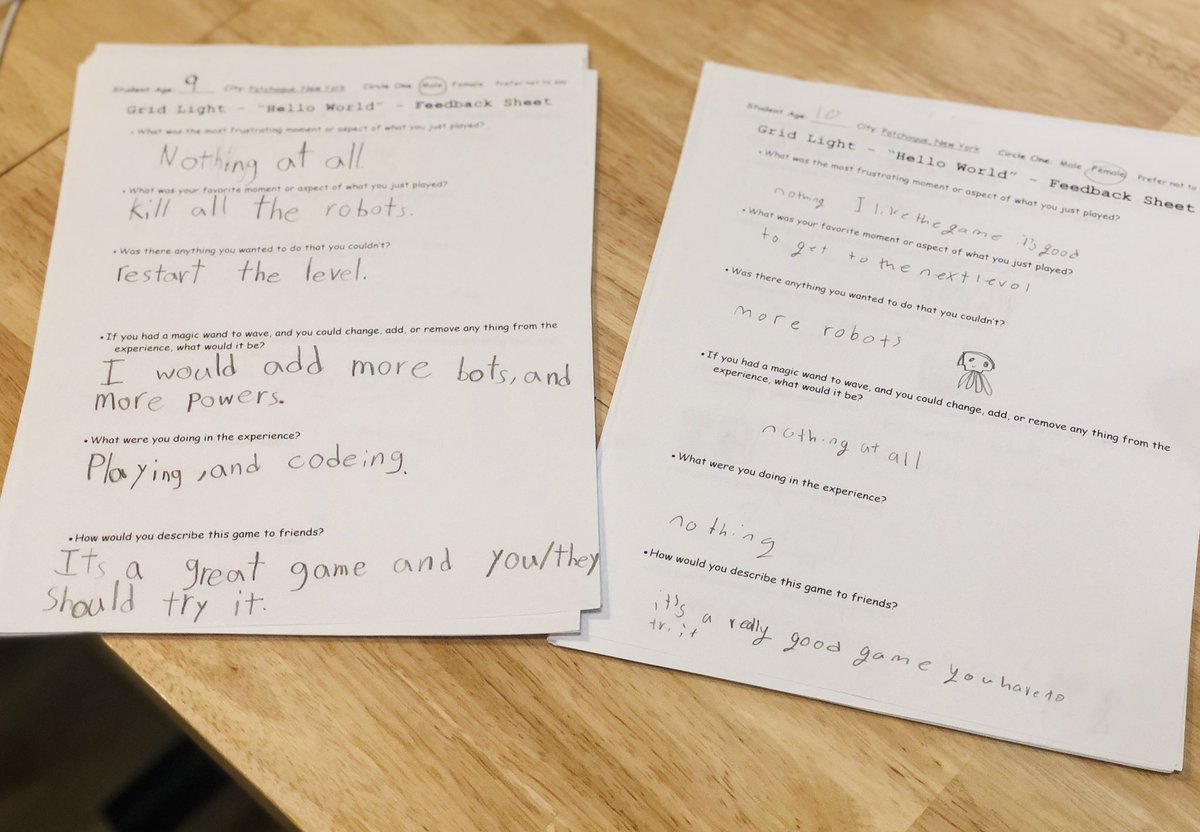 Student Age: 9 City: Patchogue, New York Circle One: Male Female Prefer not to say
Grid Light - "Hello World" - Feedback Sheet
• What was the most frustrating moment or aspect of what you just played?
Nothing at all.
• What was your favorite moment or aspect of what you just played?
kill all the robots.
• Was there anything you wanted to do that you couldn't?
restart the level.
• If you had a magic wand to wave, and you could change, add, or remove any thing from the
experience, what would it be?
I would add more bots, and
more powers.
• What were you doing in the experience?
Playing, and codeing.
• How would you describe this game to friends?
Its a great game and you/they
should try it.
Student Age: 10 City: Patchogue, New York Circle One: Male Female Prefer not to
Grid Light - "Hello World" - Feedback Sheet
• What was the most frustrating moment or aspect of what you just played?
nothing I like the game it's good
• What was your favorite moment or aspect of what you just played?
to get to the next levol
• Was there anything you wanted to do that you couldn't?
more robots
• If you had a magic wand to wave, and you could change, add, or remove any thing from the
experience, what would it be?
nothing at all
• What were you doing in the experience?
nothing
• How would you describe this game to friends?
it's a really good game you have to
it